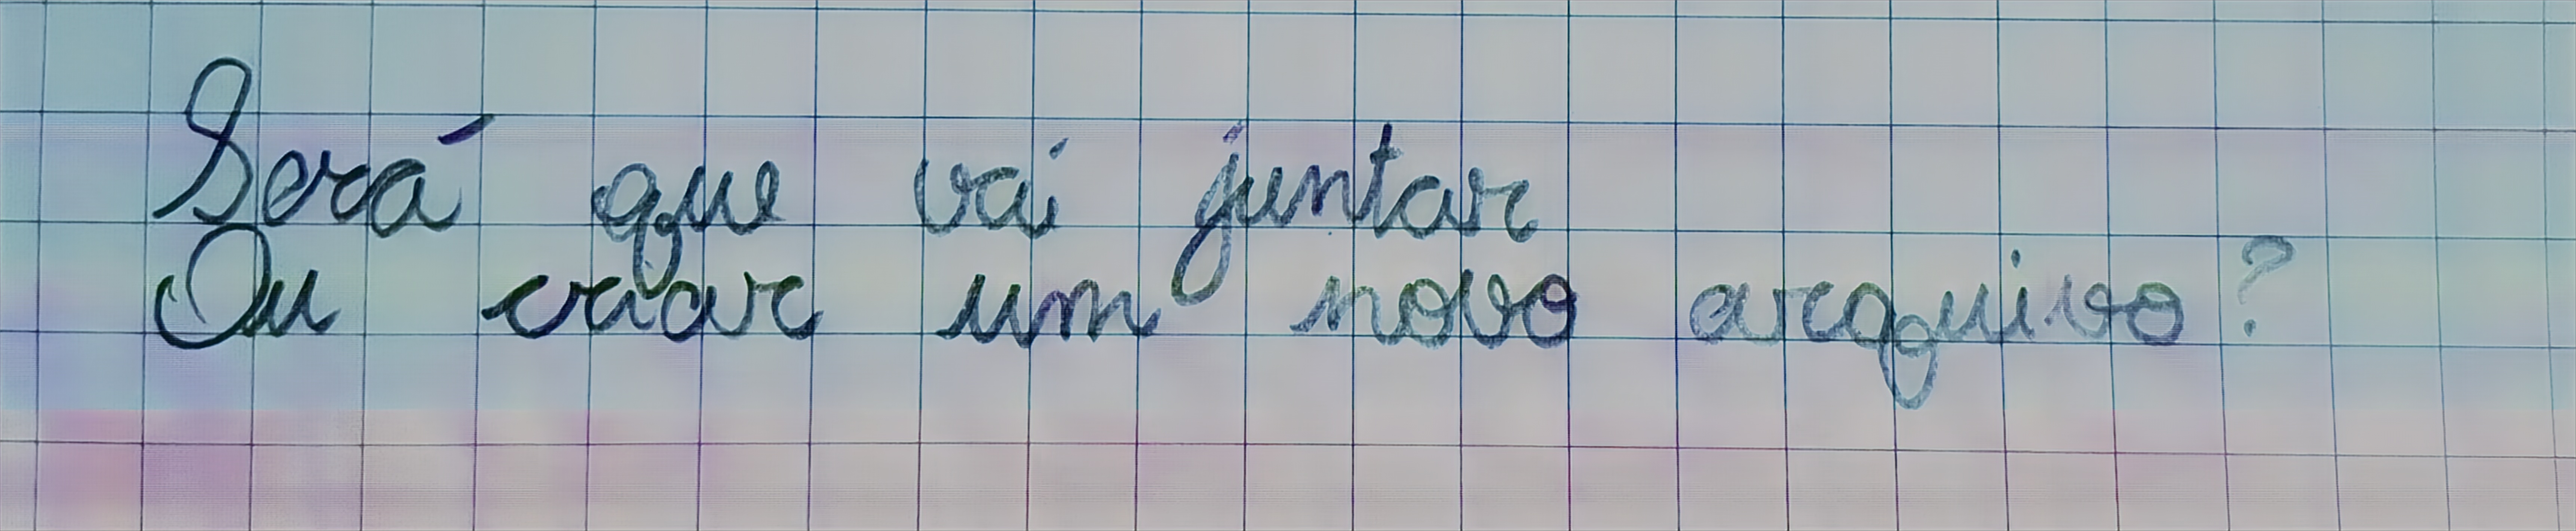 Será que vai juntar
Ou criar um novo arquivo?